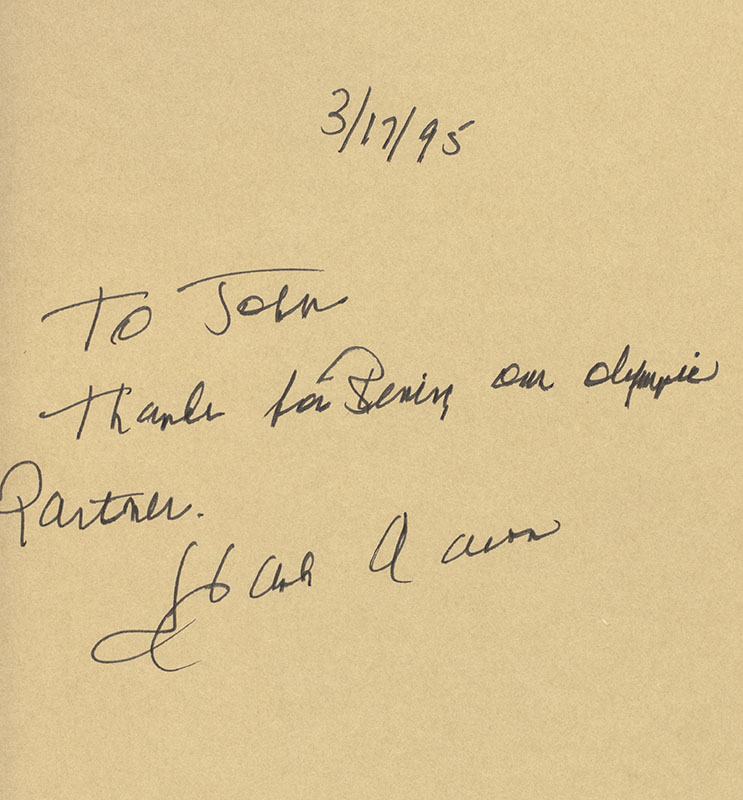 3/17/95
To John
Thanks for Being our olympic
Partner.
Hank Aaron